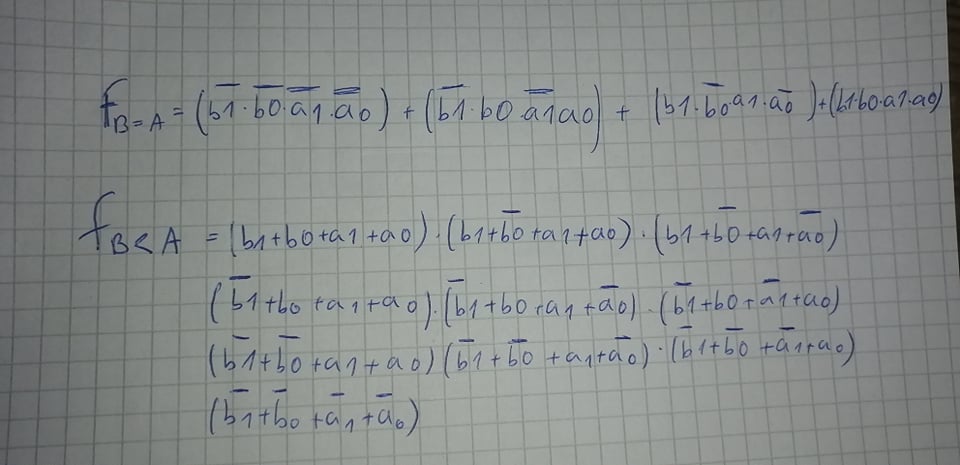 f_{B=A} = (b̅1̅ · b̅0̅ · a̅1̅ · a̅0̅) + (b̅1̅ · b0 · a̅1̅ a0) + (b1 · b̅0̅ a1 · a̅0̅) + (b1·b0·a1·a0)
f_{B<A} = (b1+b0+a1+a0) · (b1+b̅0̅+a1+a0) · (b1+b̅0̅+a1+a̅0̅)
(b̅1̅+b0+a1+a0) · (b̅1̅+b0+a1+a̅0̅) · (b̅1̅+b0+a̅1̅+a0)
(b̅1̅+b̅0̅+a1+a0) (b̅1̅+b̅0̅+a1+a̅0̅) · (b̅1̅+b̅0̅+a̅1̅+a0)
(b̅1̅+b̅0̅+a̅1̅+a̅0̅)